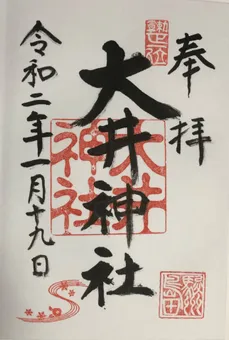 奉拝
大井神社
令和二年一月十九日
大井神社
駿州島田